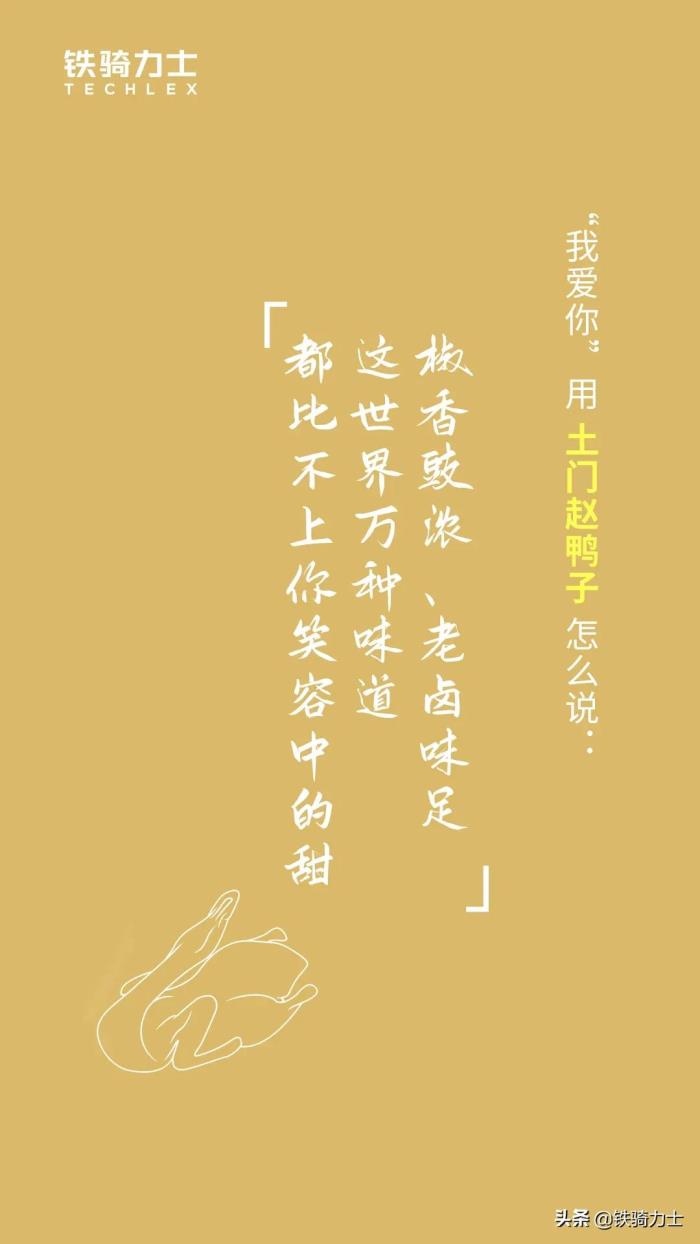 铁骑力士
TECHLEX
“我爱你”用土门赵鸭子怎么说：
「椒香豉浓、老卤味足
这世界万种味道
都比不上你笑容中的甜」
头条 @铁骑力士